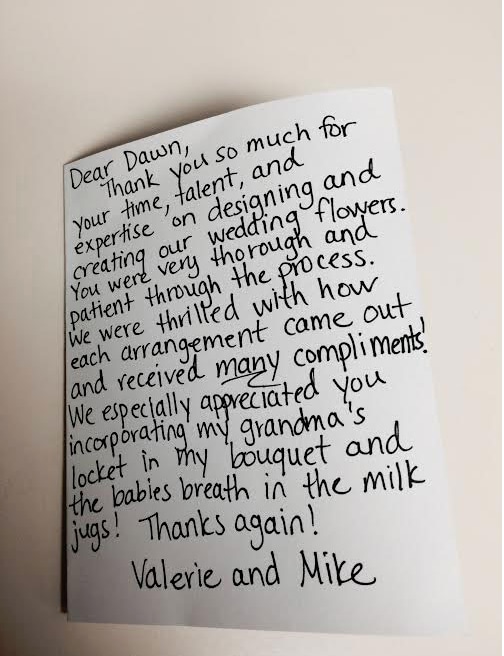 Dear Dawn,
Thank you so much for
your time, talent, and
expertise on designing and
creating our wedding flowers.
You were very thorough and
patient through the process.
We were thrilled with how
each arrangement came out
and received many compliments!
We especially appreciated you
incorporating my grandma's
locket in my bouquet and
the babies breath in the milk
jugs! Thanks again!
Valerie and Mike